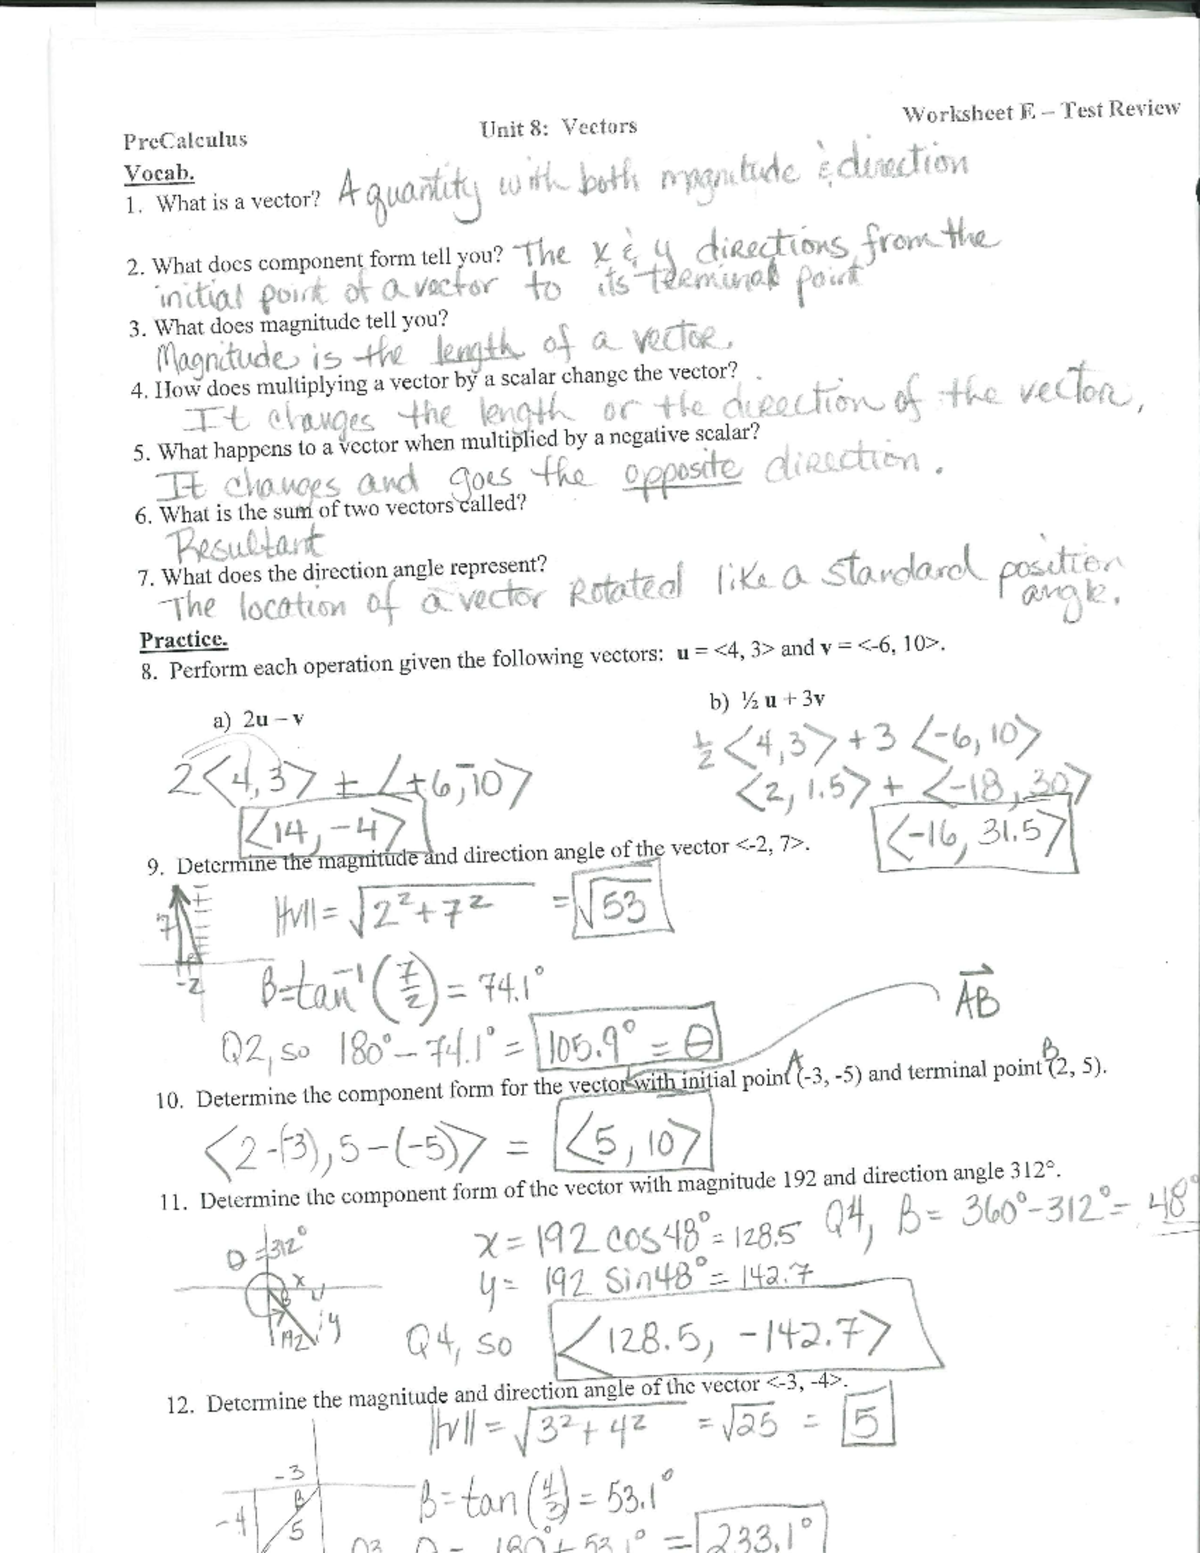 Worksheet E – Test Review
PreCalculus Unit 8: Vectors
Vocab.
1. What is a vector? A quantity with both magnitude & direction
2. What does component form tell you? The x & y directions from the
initial point of a vector to its terminal point
3. What does magnitude tell you?
Magnitude is the length of a vector.
4. How does multiplying a vector by a scalar change the vector?
It changes the length or the direction of the vector.
5. What happens to a vector when multiplied by a negative scalar?
It changes and goes the opposite direction.
6. What is the sum of two vectors called?
Resultant
7. What does the direction angle represent?
The location of a vector Rotated like a standard position
angle.
Practice.
8. Perform each operation given the following vectors: u = <4, 3> and v = <-6, 10>.
a) 2u – v b) ½ u + 3v
2<4,3> + <+6,-10> ½<4,3> + 3<-6,10>
<2, 1.5> + <-18, 30>
<14, -4> <-16, 31.5>
9. Determine the magnitude and direction angle of the vector <-2, 7>.
7 ||v|| = √2²+7² = √53
-2
β=tan⁻¹(7/2) = 74.1°
AB
Q2, so 180° – 74.1° = 105.9° = θ
A B
10. Determine the component form for the vector with initial point (-3, -5) and terminal point (2, 5).
<2-(-3), 5-(-5)> = <5, 10>
11. Determine the component form of the vector with magnitude 192 and direction angle 312°.
θ=312° x = 192 cos48° = 128.5 Q4, β = 360°-312° = 48°
x β y = 192 sin48° = 142.7
192 y Q4, so <128.5, -142.7>
12. Determine the magnitude and direction angle of the vector <-3, -4>.
||v|| = √3²+4² = √25 = 5
-3
β β=tan(4/3) = 53.1°
-4 5
Q3 θ = 180°+53.1° = 233.1°